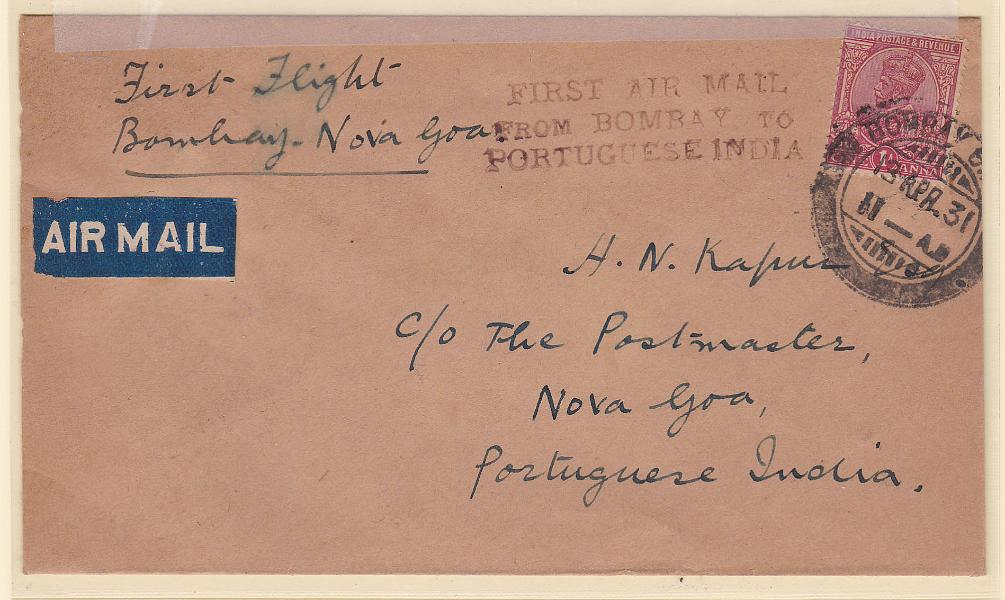 First Flight
Bombay - Nova Goa.
FIRST AIR MAIL
FROM BOMBAY TO
PORTUGUESE INDIA
INDIA POSTAGE & REVENUE
1 ANNA
BOMBAY
13 APR. 31
11 — A.M
AIR MAIL
H. N. Kapur
c/o The Postmaster,
Nova Goa,
Portuguese India.